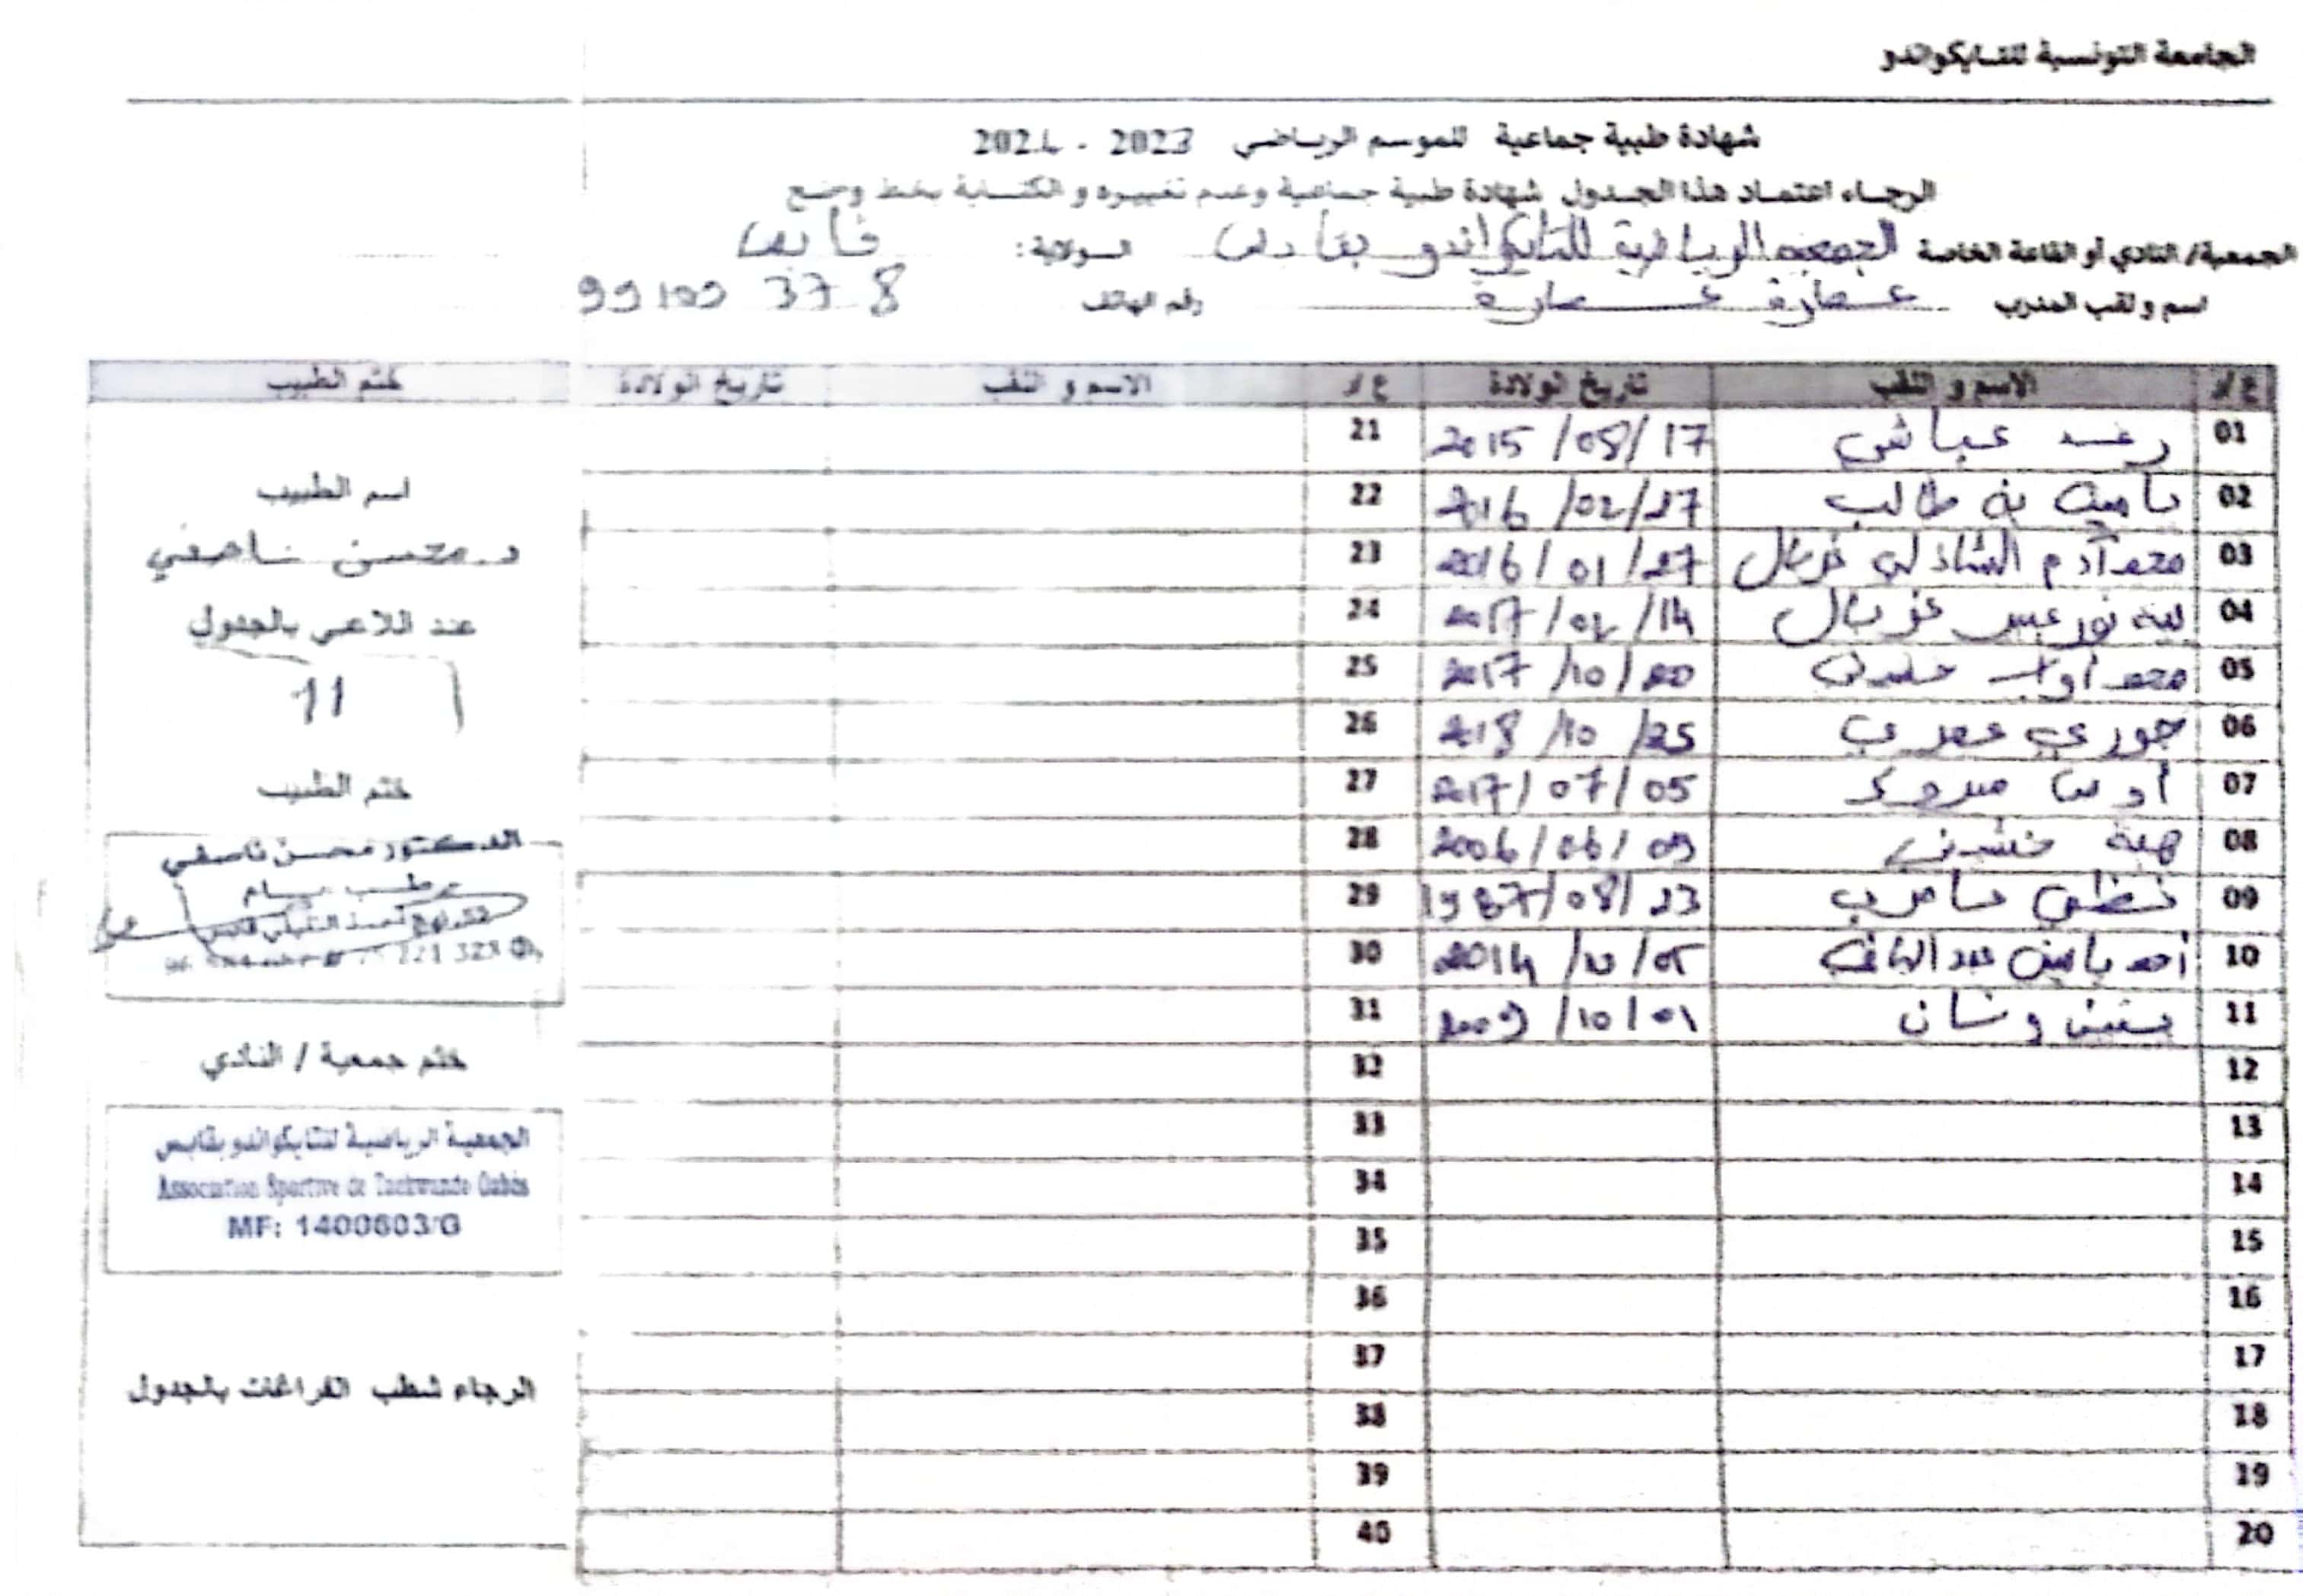 الجامعة التونسية للتايكواندو
شهادة طبية جماعية للموسم الرياضي 2023 - 2024
الرجاء اعتماد هذا الجدول شهادة طبية جماعية وعدم تغييره و الكتابة بخط وضح
الجمعية/ النادي أو القاعة الخاصة الجمعية الرياضية للتايكواندو بقابس الولاية: قابس
اسم و لقب المدرب عمارة عمارة رقم الهاتف 99109 378
ع/د الاسم و اللقب تاريخ الولادة ع/د الاسم و اللقب تاريخ الولادة ختم الطبيب
01 رغد عياشي 2015/08/17 21
02 يامين بن طالب 2016/02/27 22
03 محمد آدم الشاذلي غربال 2016/01/27 23
04 لينة نور غربال 2017/02/14 24
05 محمد أواب 2017/10/20 25
06 جوري 2018/10/25 26
07 أوس مبروك 2017/07/05 27
08 هبة خشيني 2006/06/09 28
09 1987/08/23 29
10 أحمد ياسين 2014/10/05 30
11 2009/10/01 31
12 32
13 33
14 34
15 35
16 36
17 37
18 38
19 39
20 40
اسم الطبيب
د. محسن ناصفي
عدد اللاعبي بالجدول
11
ختم الطبيب
الدكتور محسن ناصفي
ختم جمعية / النادي
الجمعية الرياضية للتايكواندو بقابس
Association Sportive de Taekwondo Gabès
MF: 1400603/G
الرجاء شطب الفراغات بالجدول